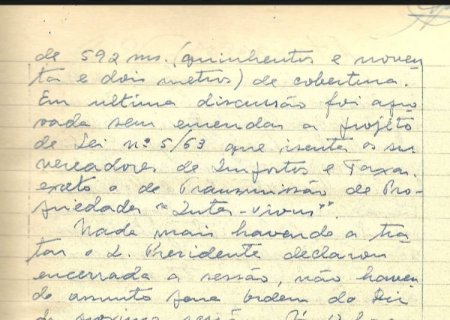 de 592 ms. (quinhentos e noven
ta e dois metros) de cobertura.
Em ultima discussão foi apro
vada sem emendas o projeto
de Lei nº 5/63 que isenta os
vereadores de Impostos e Taxas
exceto o de Transmissão de Pro-
priedades "Inter-Vivus".
Nada mais havendo a tra
tar o S. Presidente declarou
encerrada a sessão, não haven
do assunto para ordem do Dia
da proxima